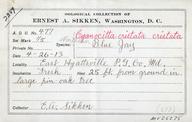 OOLOGICAL COLLECTION OF
ERNEST A. SIKKEN, WASHINGTON, D. C.
A. O. U. 477 Cyanocitta cristata cristata
Set Mark Blue Jay
Date 4-26-13
Locality East Hyattsville P.G. Co, Md.
Incubation Fresh Nest 25 ft from ground in
large pin oak tree
Collector E. A. Sikken